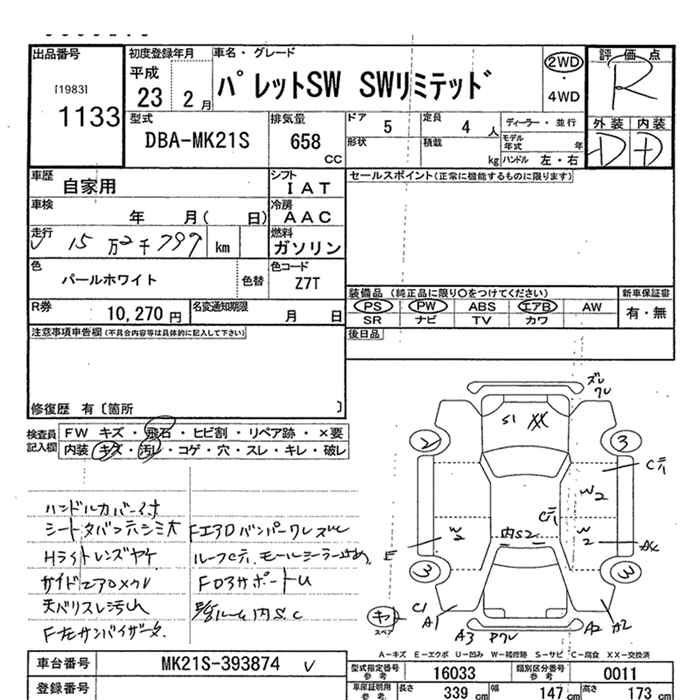 出品番号
[1983]
1133
初度登録年月
平成
23 2月
車名・グレード
パレットSW SWリミテッド
2WD
・
4WD
評価点
R
型式
DBA-MK21S
排気量
658
CC
ドア 5
形状
定員 4 人
積載 kg
ディーラー・並行
モデル年式 年
ハンドル 左・右
外装 内装
D D
車歴
自家用
シフト
IAT
セールスポイント(正常に機能するものに限ります)
車検
年 月( 日)
冷房
AAC
走行
15万2千799 km
燃料
ガソリン
色
パールホワイト
色替
色コード
Z7T
装備品 (純正品に限り○をつけてください)
新車保証書
PS PW ABS エアB AW
SR ナビ TV カワ
有・無
R券
10,270 円
名変通知期限
月 日
後日品
注意事項申告欄(不具合内容等は具体的に記入して下さい)
修復歴 有〔箇所 〕
検査員
記入欄
FW キズ・飛石・ヒビ割・リペア跡・×要
内装 キズ・汚レ・コゲ・穴・スレ・キレ・破レ
ハンドルカバー付
シートタバコ穴シミ大
Hライトレンズヤケ
サイドエアロメクレ
天バリスレ汚レ
F左サンバイザー欠
FエアロバンパーワレズレC
ルーフCテ、モールシーラー止め
F D3サポートU
ルーム内S.C
S1 XX
ズレ
ワレ
2
3
Cテ
W2
Cテ
W2
内S2
W2
AC
E
3
3
C1
A1
A3 Pワレ
A2 A2
キ
スペア
A-キズ E-エクボ U-凹み W-補修跡 S-サビ C-腐食 XX-交換済
車台番号
MK21S-393874
型式指定番号
参考
16033
類別区分番号
参考
0011
登録番号
車庫証明用
参考
長さ
339 cm
幅
147 cm
高さ
173 cm